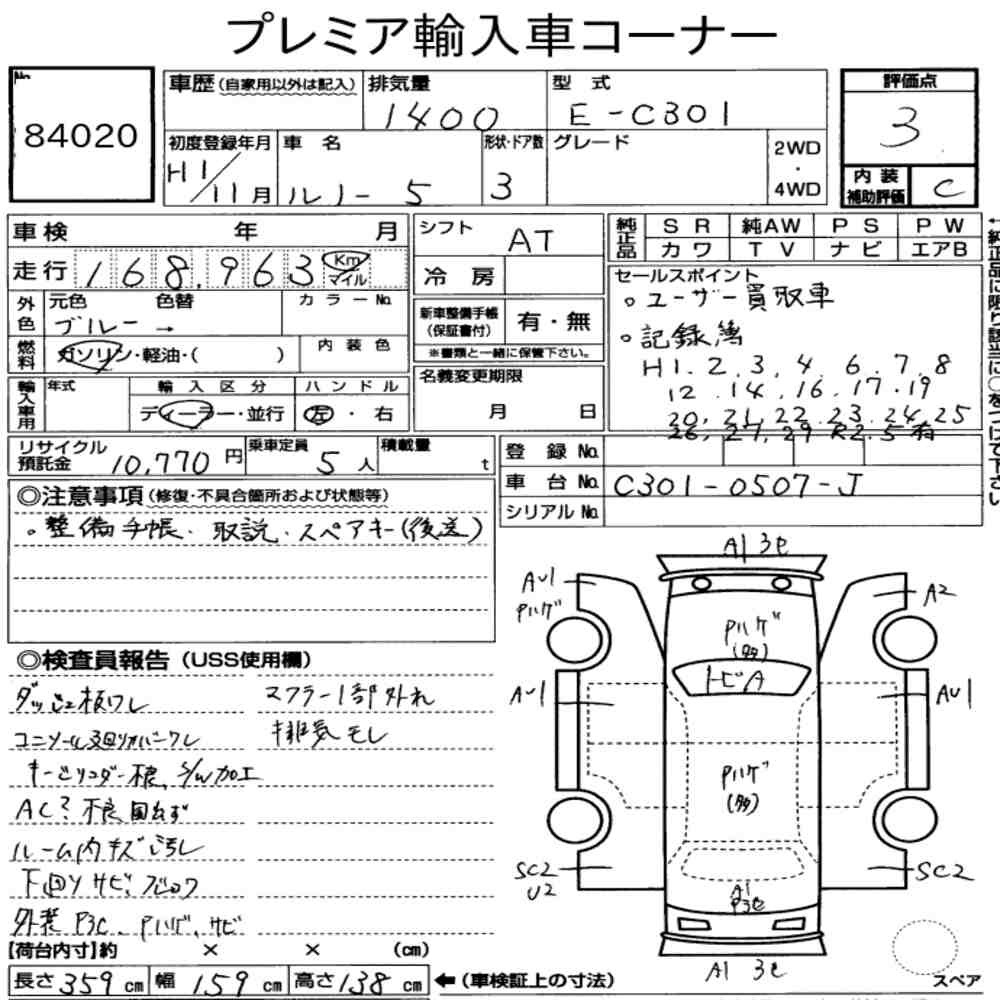 プレミア輸入車コーナー
No.
84020
車歴(自家用以外は記入)
排気量
1400
型 式
E-C301
評価点
3
初度登録年月
H1/11月
車 名
ルノー 5
形状・ドア数
3
グレード
2WD
・
4WD
内 装
補助評価
C
車検 年 月
走行 168,963 Km マイル
外色
元色 色替 カラーNo.
ブルー →
燃料
ガソリン・軽油・( )
内 装 色
輸入車用
年式
輸 入 区 分
ディーラー・並行
ハ ン ド ル
左・右
シフト
AT
冷 房
新車整備手帳
(保証書付)
有・無
※書類と一緒に保管下さい。
名義変更期限
月 日
純正品
S R 純AW P S P W
カワ T V ナビ エアB
←純正品に限り該当に○をつけて下さい
セールスポイント
○ユーザー買取車
○記録簿
H1. 2. 3. 4. 6. 7. 8
12. 14. 16. 17. 19
20. 21. 22. 23. 24. 25
26. 27. 29 R2. 5 有
リサイクル
預託金
10,770 円
乗車定員
5 人
積載量
t
登 録 No.
車 台 No.
C301-0507-J
シリアル No.
◎注意事項(修復・不具合箇所および状態等)
○整備手帳. 取説. スペアキー(後送)
◎検査員報告(USS使用欄)
ダッシュ板ワレ
マフラー1部外れ
排気モレ
キーシリンダー不良. S/W加工
AC? 不良
ルーム内キズ汚れ
下回りサビ
外装 P3c. Pハゲ. サビ
A1 3c
AU1
Pハゲ
A2
Pハゲ
(多)
トビA
AU1
AU1
Pハゲ
(多)
SC2
U2
A1
P3c
SC2
A1 3c
スペア
【荷台内寸】約 × × (cm)
長さ 359 cm 幅 159 cm 高さ 138 cm
←(車検証上の寸法)